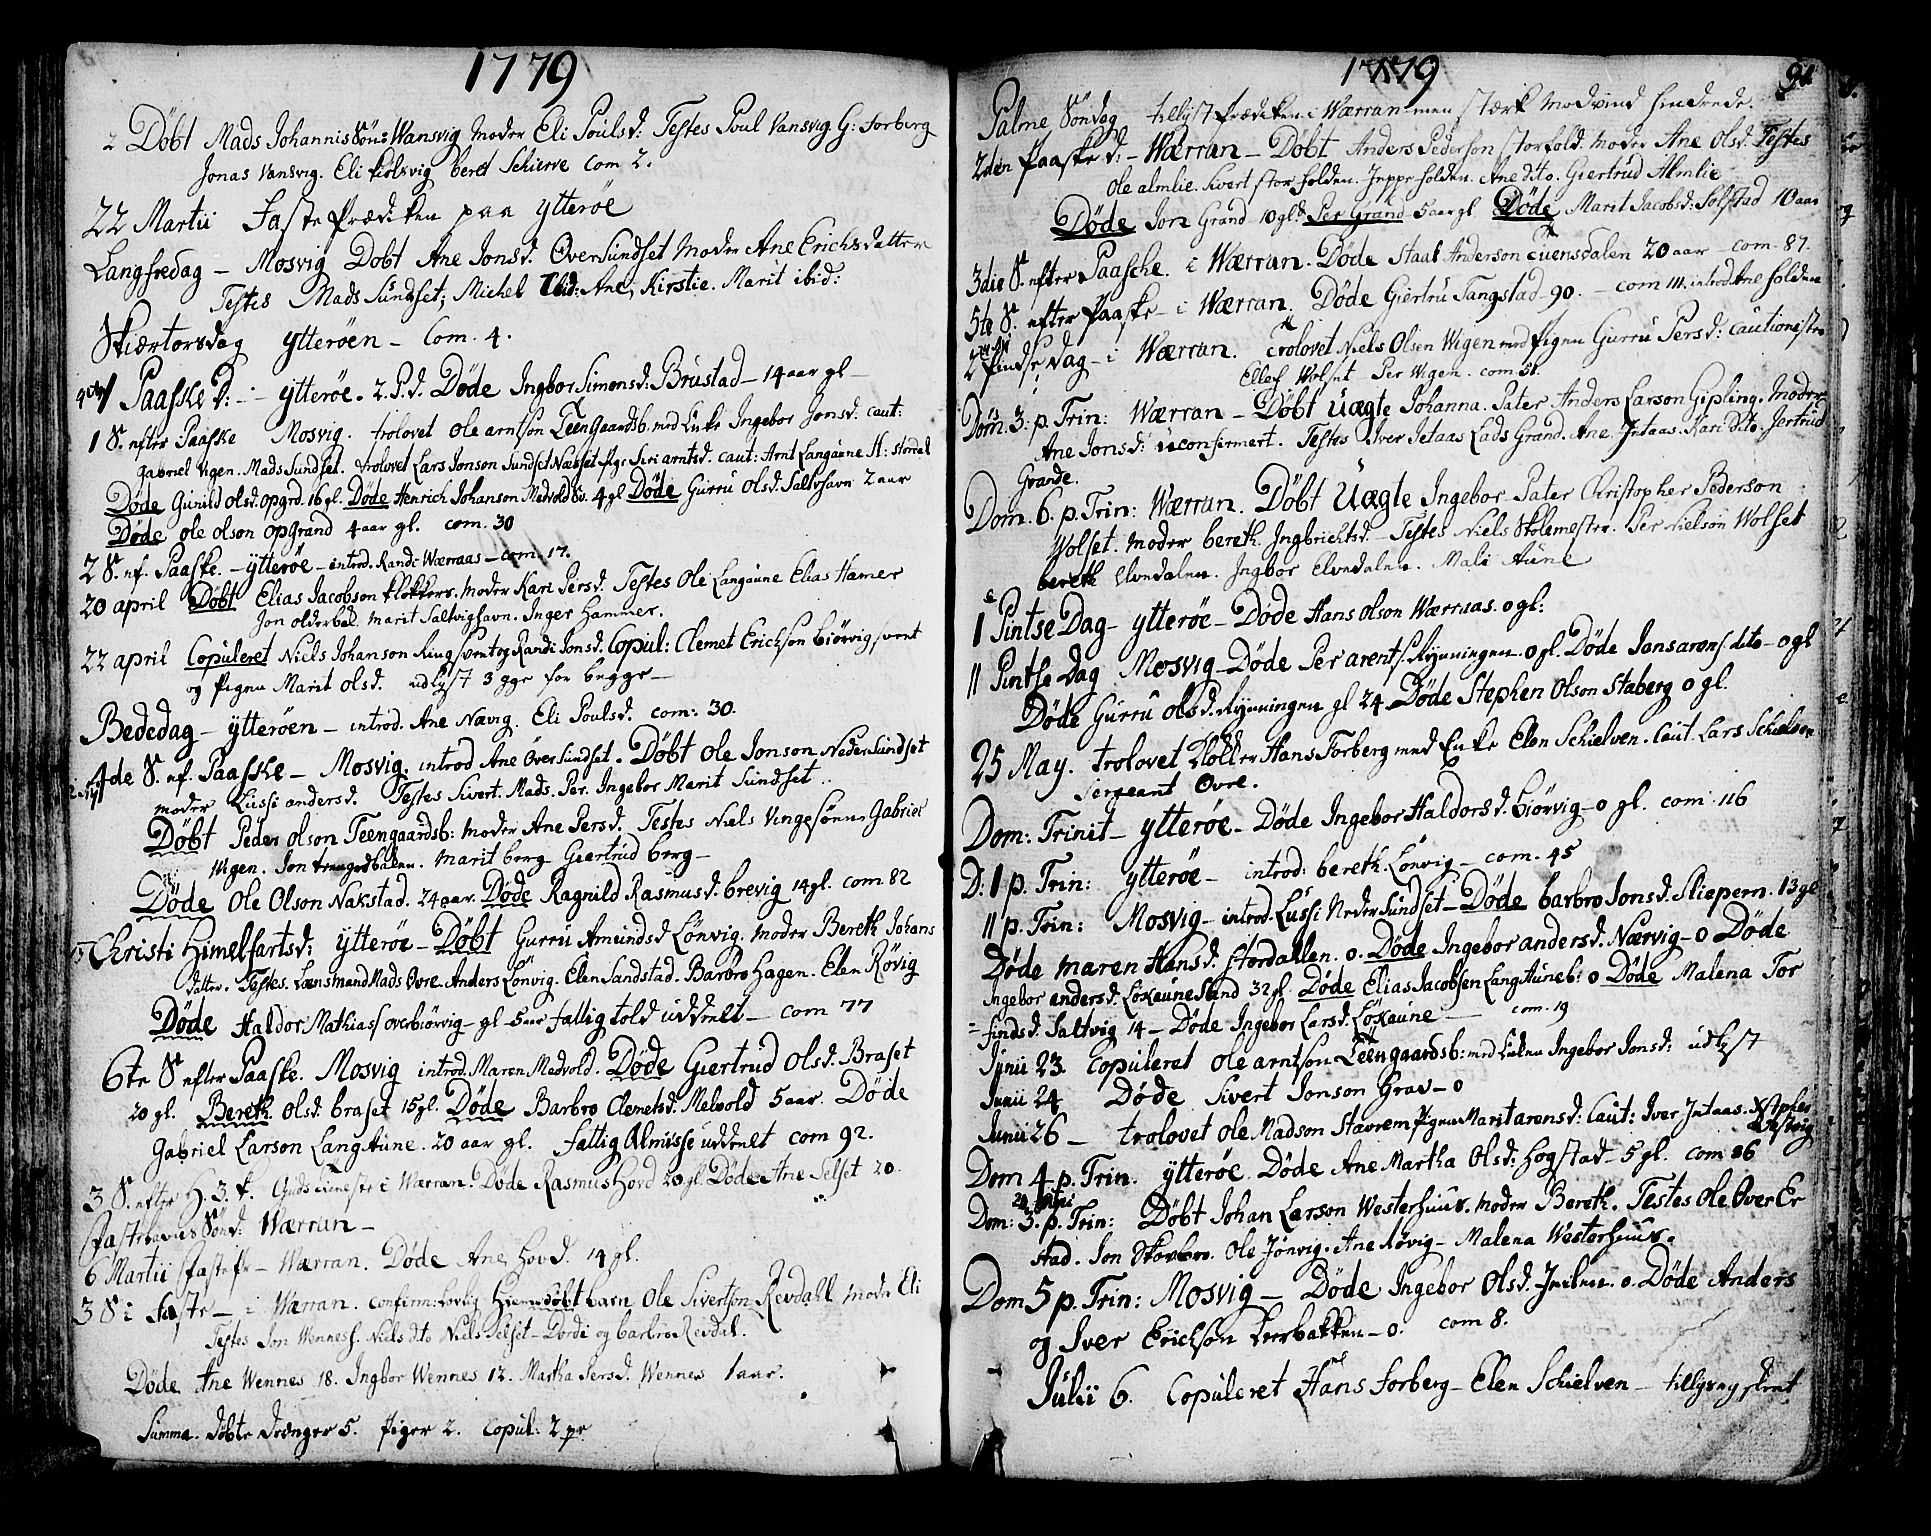 1779
2 Döbt Mads Johannis Sön: Wansvig Moder Eli Pouls d: Testes Poul Vansvig G: Forberg
Jonas Vansvig. Eli Kiölsvig beret Schierve Com 2.
22 Martii Faste Prædiken paa Ytteröe
Langfredag – Mosvig Döbt Ane Jons d. Over Sundset Moder Ane Erichsdatter
Testes Mads Sundset; Michel Ibid: Ane, Kirstie. Marit ibid:
Skiærtorsdag Ytteröen – Com. 4.
1 Paaske D: – Ytteröe. 2. P. d. Döde Ingbor Simons d. Brustad – 14 aar gl –
1 S. efter Paaske Mosvig. trolovet Ole Arntson Teengaardsb. med Enke Ingebor Jons d. Caut:
Gabriel Vigen. Mads Sundset. trolovet Lars Jonson Sundset Næsset Pige Siri Arnts d. Caut: Arnt Langaune
Döde Gunild Ols d. Opgrd. 16 gl. Döde Henrich Johanson Medvold 4 gl Döde Gurru Ols d. Saltvhavn 2 aar
Döde Ole Olson Opgrand 4 aar gl. com. 30
2 S. ef. Paaske. – Ytteröe – introd. Randi Wærraas – com. 17.
20 april Döbt Elias Jacobson Klokkers. Moder Kari Pers d. Testes Ole Langaune Elias Hamer
Jon Olderbak. Marit Saltvighavn. Inger Hammer.
22 april Copuleret Niels Johanson Ring svent og Randi Jons d. Copul: Clemet Erickson Biörvig svent
og Pigen Marit Ols d. udlyst 3 gge for begge –
Bededag – Ytteröen – introd. Ane Nævig. Eli Pouls d. com: 30.
4de S. ef. Paaske – Mosvig. introd Ane Over Sundset. Döbt Ole Jonson Neder Sundset
moder Lussi anders d. Testes Sivert. Mads. Per. Ingebor Marit Sundset
Döbt Peder Olson Teengaardsb: Moder Ane Pers d. Testes Niels Vingesönn Gabriel
Wigen. Jon trengerdbalen. Marit berg Giertrud berg –
Döde Ole Olson Nakstad. 24 aar. Döde Ragnild Rasmus d. brevig 14 gl. com 82
Christi Himelfarts d: Ytteröe – Döbt Gurru Amunds d Lönvig. Moder Bereth Johans
datter. Testes. Lænsmand Mads Ovre. Anders Lönvig. Elen Sandstad. Barbro Hagen. Elen Rövig
Döde Haldor Mathias s overbiörvig – gl 5 aar fattig told uddeelt – com 77
6te S efter Paaske. Mosvig introd. Maren Medvold. Döde Giertrud Ols d. Braset
20 gl. Bereth Ols d. braset 15 gl. Döde Barbro Clemets d. Melvold 5 aar. Döde
Gabriel Larson Langaune. 20 aar gl. fattig Almisse uddeelt com 92.
3 S. efter H. 3. K. Guds tieneste i Wærran. Döde Rasmus Hovd 20 gl. Döde Ane Selset 20.
Fastelavns Sönd: Wærran –
6 Martii Faste Pr – Wærran. Döde Ane Hovd. 14 gl.
3 S i Faste – i Wærran. Confirm: lovlig Hiemedöbt barn Ole Sivertson Revdall Moder Eli
Testes Jon Wennes s. Niels dto Niels Selset – Dordi og barbro Revdal.
Döde Ane Wennes 18. Ingbor Wennes 12. Martha Pers d. Wennes 1 aar.
Summa. Döbte Drenger 5. Piger 2. Copul: 2 pr
1779
91
Palme Söndag tillyst Prædiken i Wærran men stærk Modvind hindrede.
2den Paaske d: – Wærran – Döbt Anders Pederson Storfold. Moder Ane Ols d. Testes
Ole almlie. Sivert Storholden. Jeppe holden. Ane dito. Giertrud Almlie
Döde Jon Grand 10 gl. Per Grand 5 aar gl Döde Marit Jacobs d: Solstad 10 aar
3die S. efter Paasche. i Wærran. Döde Staal Anderson Cuensdalen 20 aar – com. 87.
5te S. efter Paaske – i Wærran. Döde Giertru Tangstad 90. – com 111. introd Ane holden
2 Pindse Dag – i Wærran. trolovet Niels Olsen Wigen med Pigen Gurru Pers d: Cautionister
Ellef Wolset Per Wigen. com 51.
Dom. 3. p. Trin: Wærran – Döbt Uægte Johanna. Pater Anders Larson Gipling. Moder
Ane Jons d: uconfermert. Testes Iver Jetaas Lads Grand. Ane Jntaas. Kari Dito. Jertrud
Grande.
Dom. 6. p. Trin: Wærran. Döbt Uægte Ingebor Pater Christopher Pederson
Wolset. Moder bereth Ingbrichts d. – Testes Niels Skolemester. Per Nielson Wolset
bereth Elvedalen. Ingbor Elvedalen. Mali Aune
1 Pintse Dag – Ytteröe – Döde Hans Olson Wærraas. 0 gl:
11 Pintse Dag Mosvig – Döde Per arents. Rynningen. 0 gl. Döde Jans arens. dito – 0 gl
Döde Gurru Ols d. Rynningen gl 24. Döde Stephen Olson Staberg 0 gl.
25 May. trolovet Hans Forberg med Enke Elen Schielven. Caut. Lars Schielven
Sergeant Ovre.
Dom: Trinit – Ytteröe – Döde Ingebor Haldors d. biörvig – 0 gl. com: 116
D: 1 p. Trin: Ytteröe – introd: bereth Lönvig – com. 45
11 p. Trin: Mosvig – introd. Lussi Neder Sundset – Döde barbro Jons d. Sliepern. 13 gl
Döde maren Hans d. Stordallen. 0. Döde Ingebor anders d. Nærvig – 0 Döde
Ingebor anders d. Loxaune Sand 32 gl. Döde Elias Jacobsen Langaune b: 0 Döde Malena Tor
finds d. Saltvig 14 – Döde Ingebor Lars d. Loxaune – com. 19
Junii 23 copuleret Ole arntson Teengaardsb: med Enken Ingebor Jons d: udlyst
Junii 24 Döde Sivert Jonson Grav – 0
Junii 26 – trolovet Ole Madson Stavrem Pigen Marit arens d: Caut: Iver Jntaas.
Dom 4 p. Trin. Ytteröe. Döde Ane Martha Ols d: Hogstad – 5 gl. com 86
Dom: 3. p. Trin: Döbt Johan Larson Westerhuus. Moder Bereth. Testes Ole Over Er
stad. Jon Skovbro. Ole Jönvig. Ane Rövig – Malena Westerhuus.
Dom 5 p. Trin: Mosvig – Döde Ingebor Ols d. 0. Döde Anders
og Iver Erichson Leerbakken – 0. com 8.
Julii 6. Copuleret Hans Forberg – Elen Schielven –